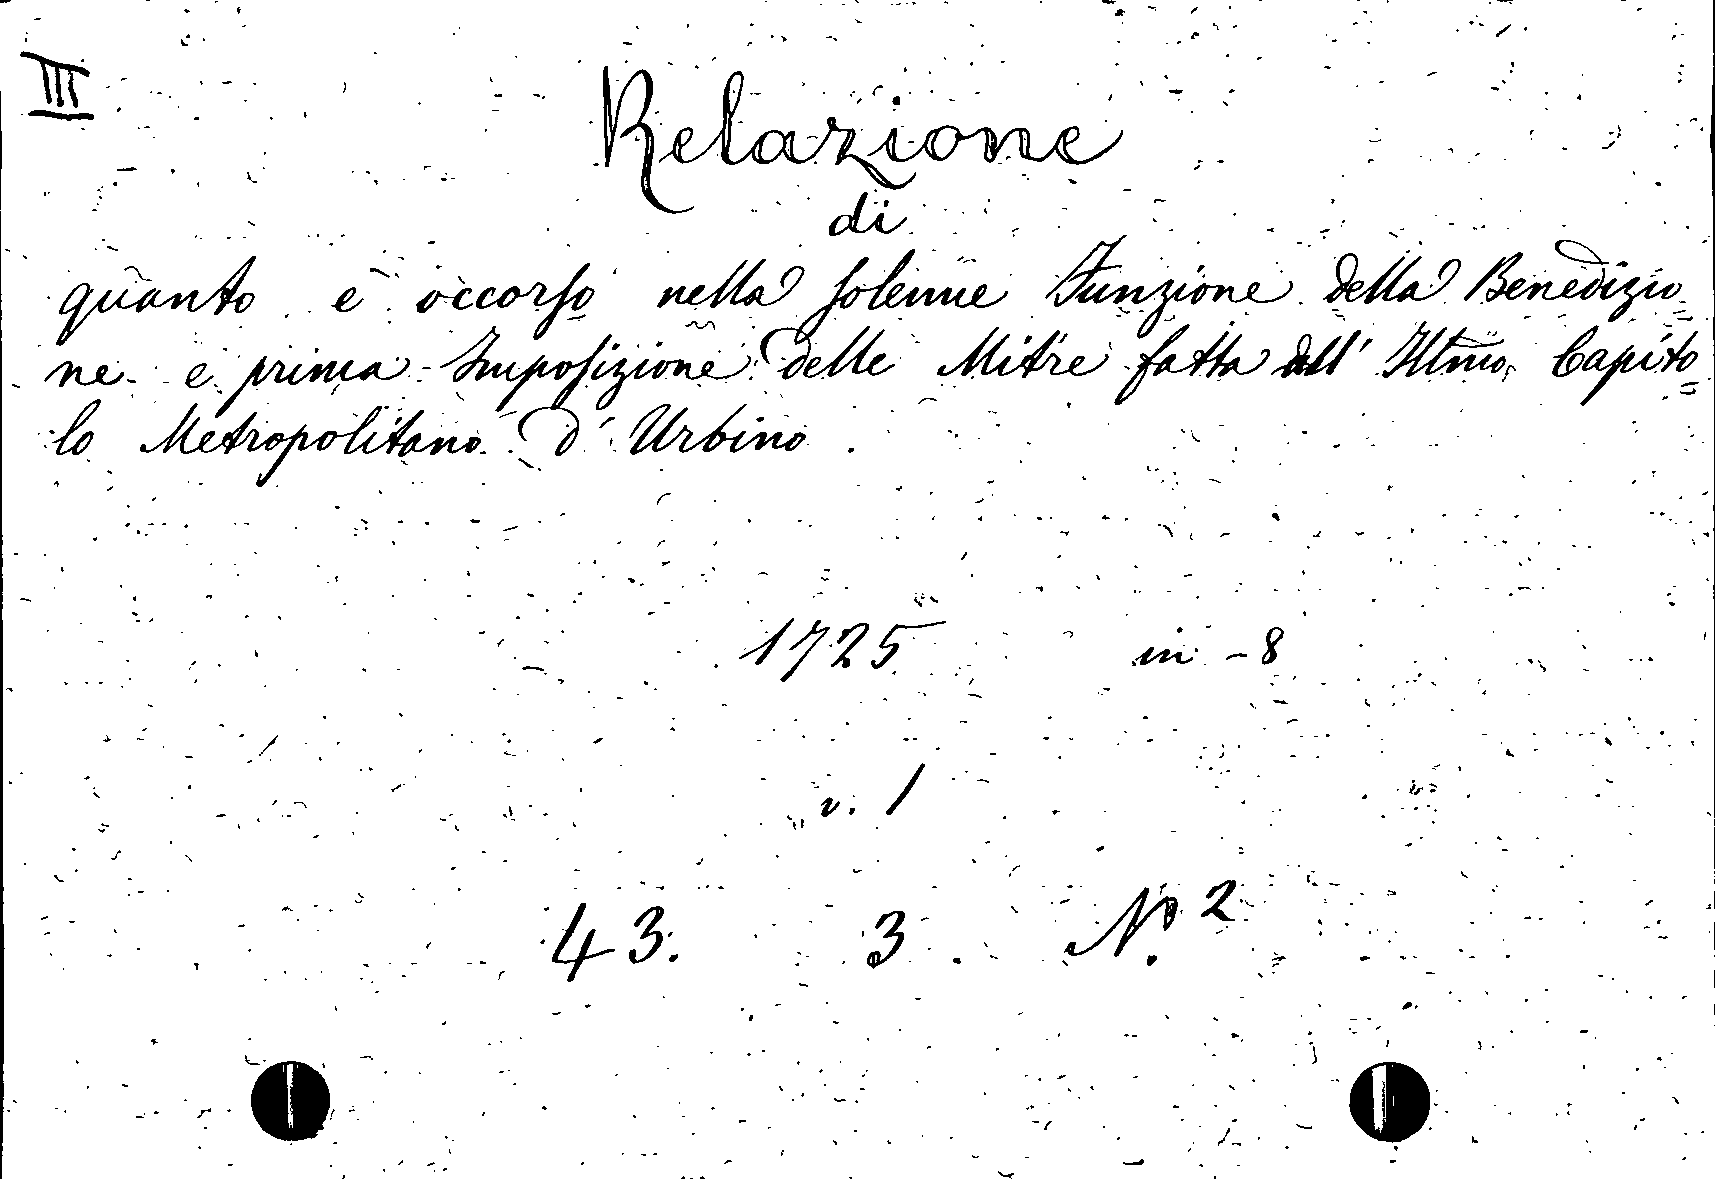 III
Relazione
di
quanto è occorso nella solenne Funzione della Benedizio
ne e prima Imposizione delle Mitre fatta dall' Illmo. Capito=
lo Metropolitano d' Urbino.
1725 in-8
v. 1
43. 3. N.º 2